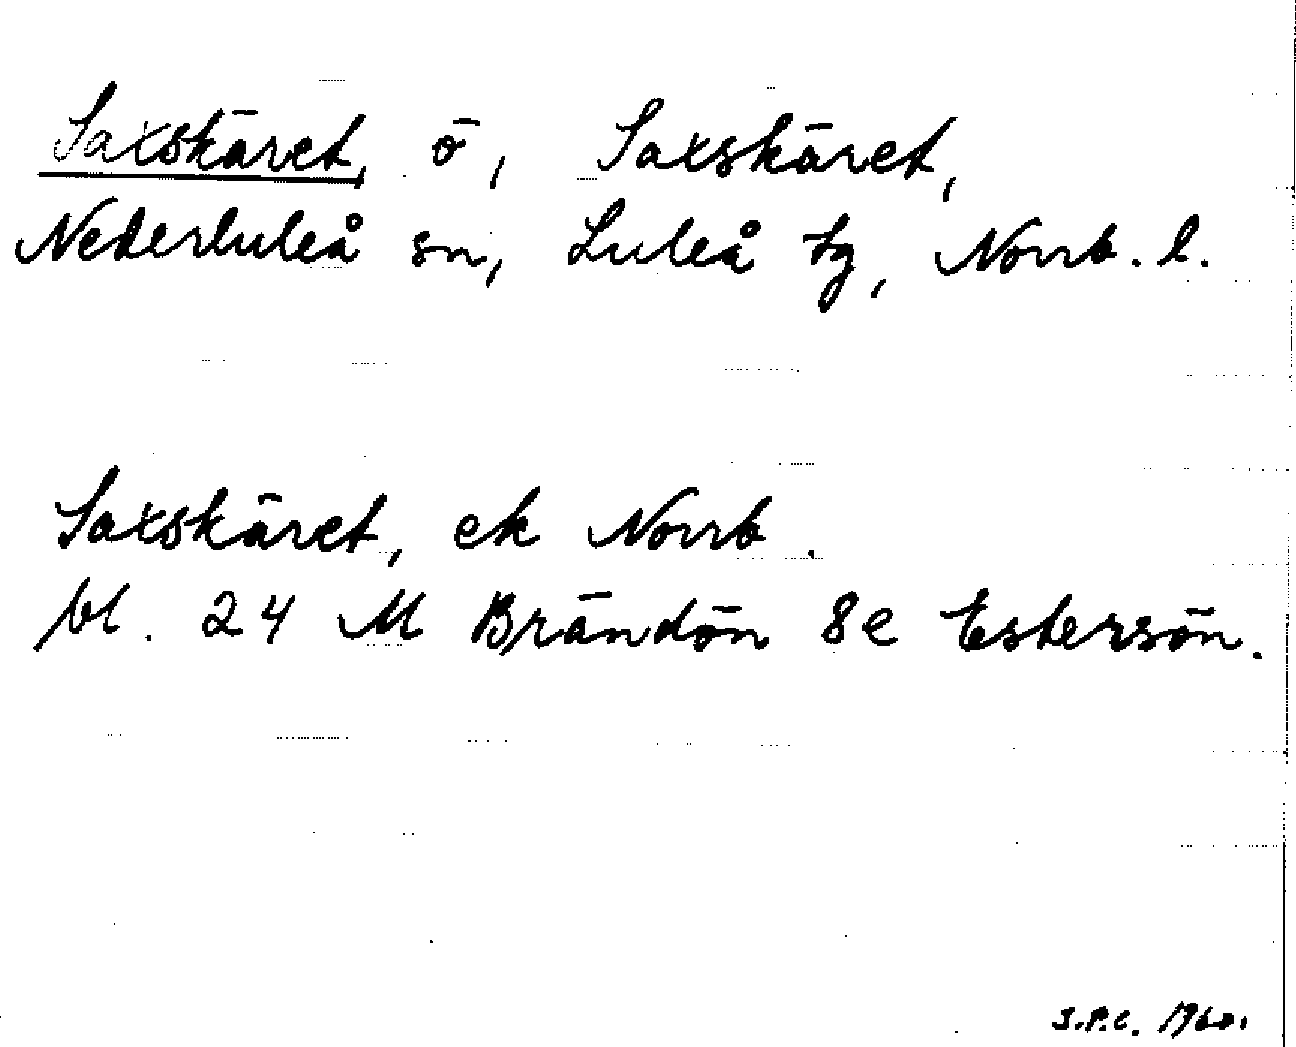 Saxskäret, ö, Saxskäret,
Nederluleå sn, Luleå tg, Norrb. l.
Saxskäret, ek Norrb.
bl. 24 M Brändön 8e Estersön.